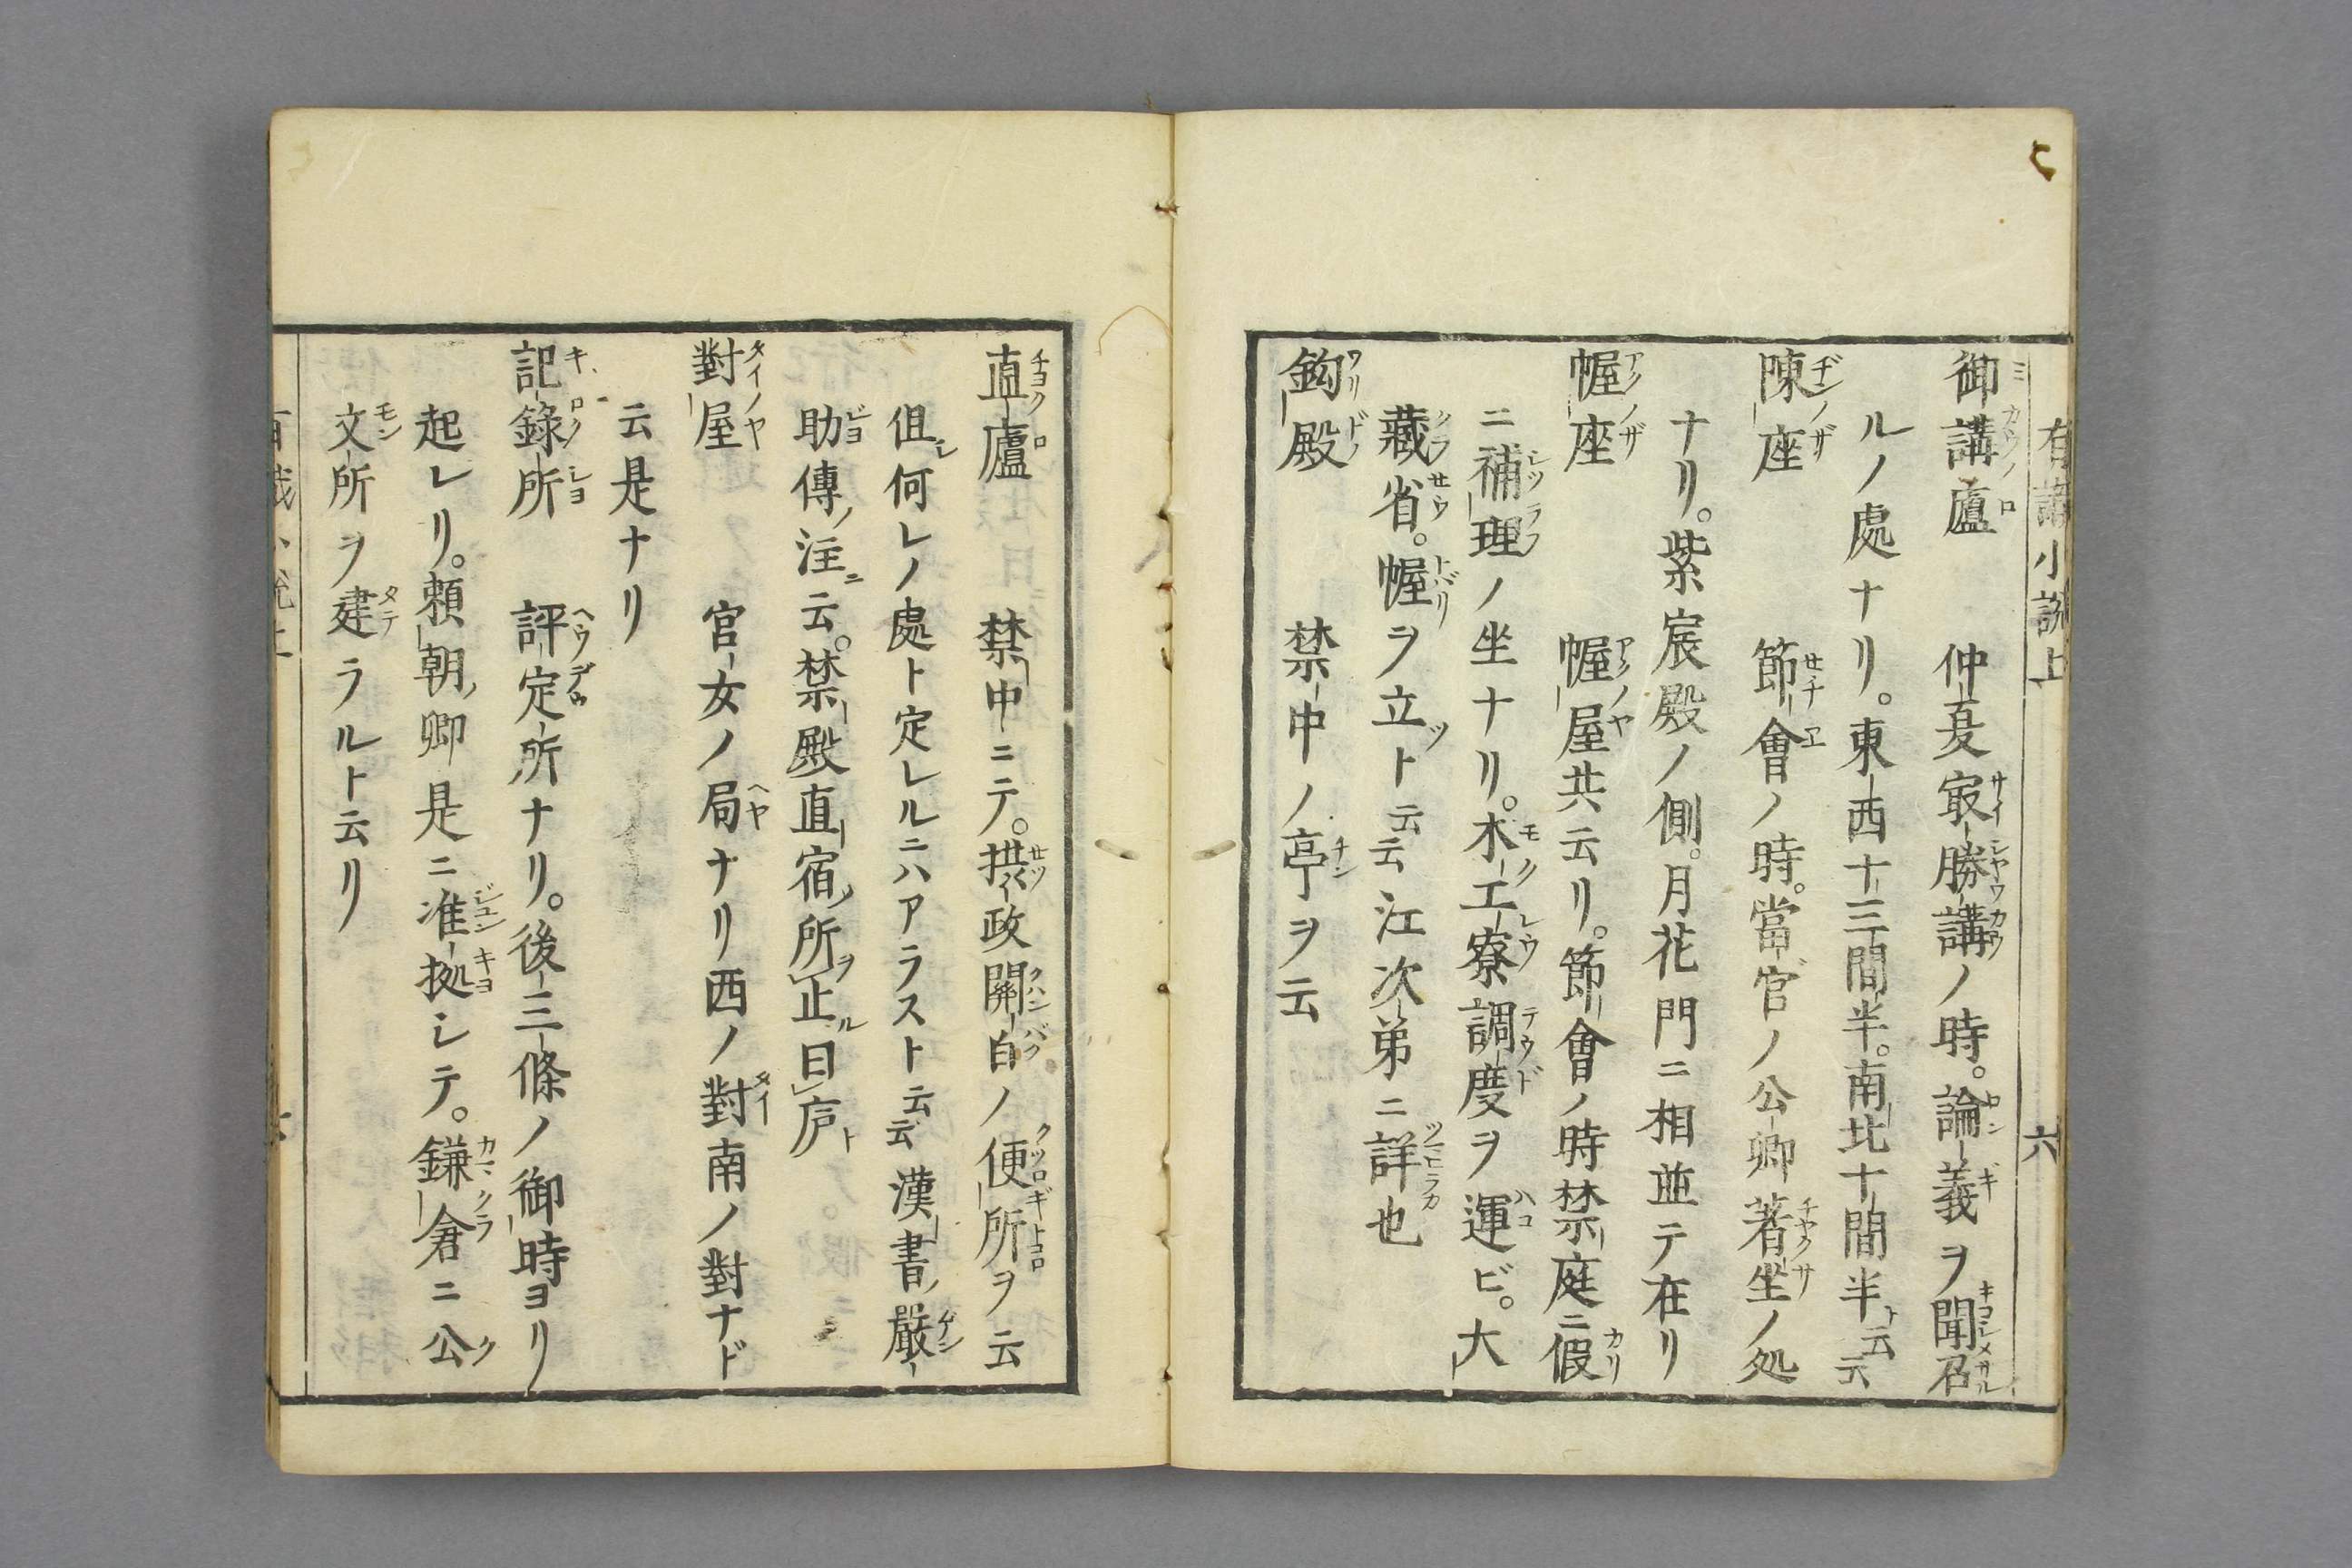 有識小説上
六
御講廬 仲夏㝡勝講ノ時。論義ヲ聞召
ルノ處ナリ。東西十三間半。南北十間半ト云云
陳座 節會ノ時。當官ノ公卿著坐ノ処
ナリ。紫宸殿ノ側。月花門ニ相並テ在リ
幄座 幄屋共云リ。節會ノ時禁庭ニ假
ニ補理ノ坐ナリ。木工寮調度ヲ運ビ。大
藏省。幄ヲ立ト云云江次第ニ詳也
鈎殿 禁中ノ亭ヲ云
直廬 禁中ニテ。摂政関白ノ便所ヲ云
但何レノ處ト定レルニハアラスト云云漢書嚴
助傳ノ注ニ云。禁殿直宿ノ所ヲ止ル曰庐ト
對屋 官女ノ局ナリ西ノ對南ノ對ナド
云是ナリ
記録所 評定所ナリ。後三條ノ御時ヨリ
起レリ。頼朝ノ卿是ニ准拠シテ。鎌倉ニ公
文所ヲ建ラルト云リ